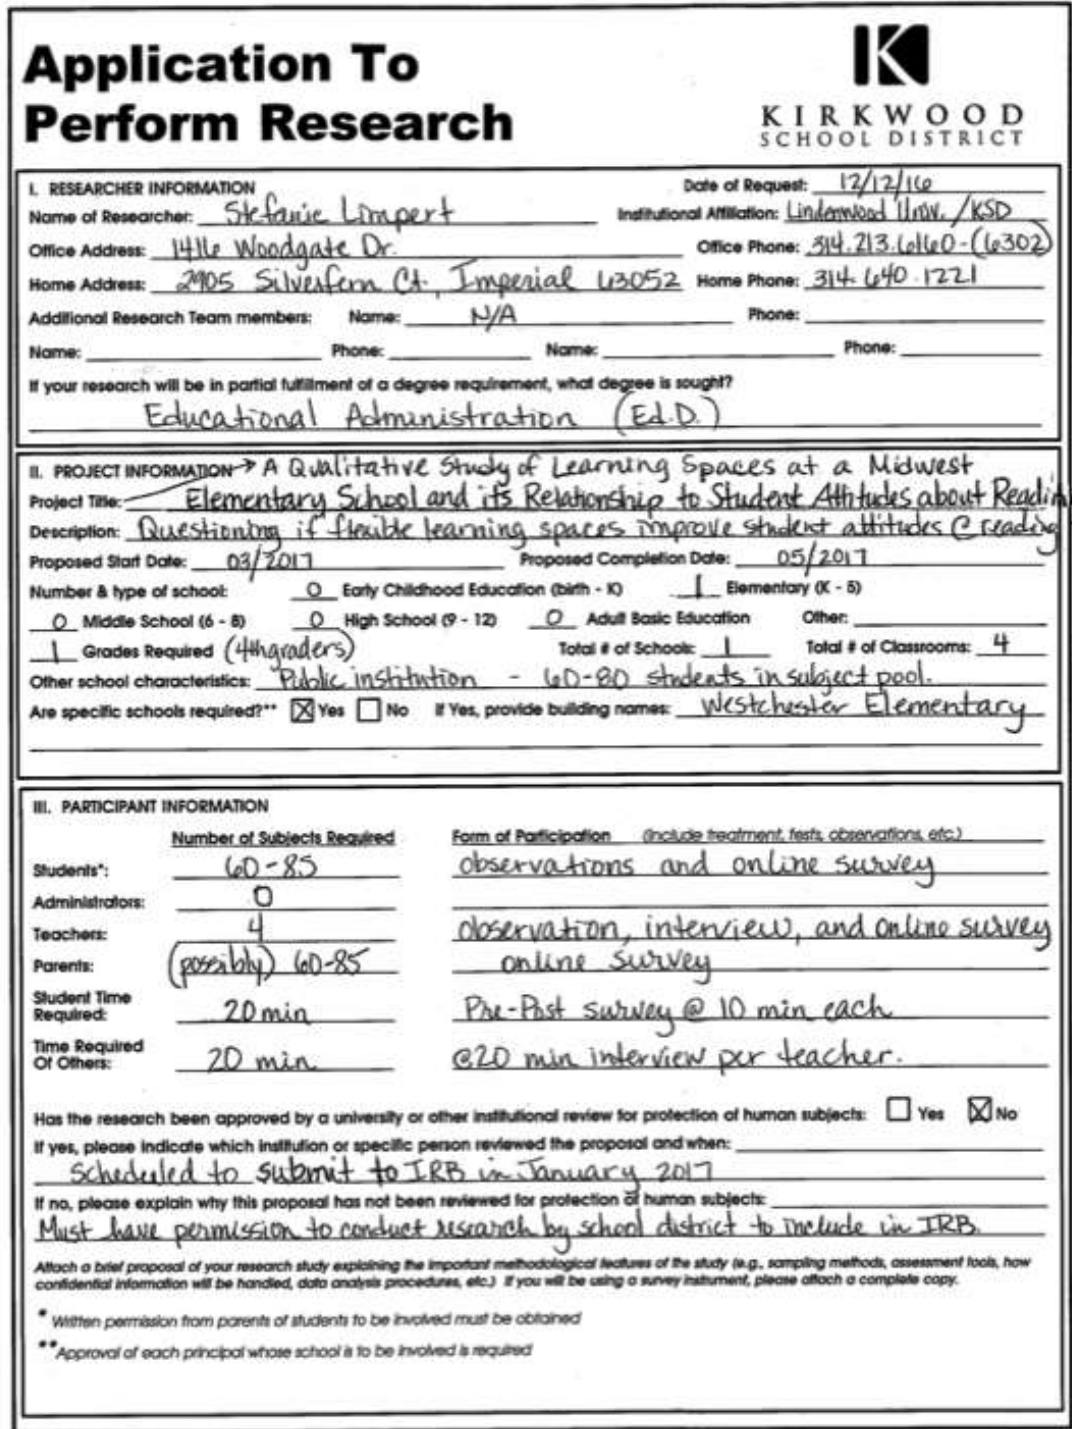 Application To
Perform Research
KIRKWOOD
SCHOOL DISTRICT
I. RESEARCHER INFORMATION Date of Request: 12/12/16
Name of Researcher: Stefanie Limpert Institutional Affiliation: Lindenwood Univ. /KSD
Office Address: 1416 Woodgate Dr. Office Phone: 314.213.6160-(6302)
Home Address: 2905 Silverfern Ct, Imperial 63052 Home Phone: 314.640.1221
Additional Research Team members: Name: N/A Phone:
Name: Phone: Name: Phone:
If your research will be in partial fulfillment of a degree requirement, what degree is sought?
Educational Administration (Ed.D.)
II. PROJECT INFORMATION → A Qualitative Study of Learning Spaces at a Midwest
Project Title: Elementary School and its Relationship to Student Attitudes about Readin
Description: Questioning if flexible learning spaces improve student attitudes @ reading
Proposed Start Date: 03/2017 Proposed Completion Date: 05/2017
Number & type of school: 0 Early Childhood Education (birth - K) 1 Elementary (K - 5)
0 Middle School (6 - 8) 0 High School (9 - 12) 0 Adult Basic Education Other:
1 Grades Required (4th graders) Total # of Schools: 1 Total # of Classrooms: 4
Other school characteristics: Public institution - 60-80 students in subject pool.
Are specific schools required?** ☒ Yes ☐ No If Yes, provide building names: Westchester Elementary
III. PARTICIPANT INFORMATION
Number of Subjects Required Form of Participation (include treatment, tests, observations, etc.)
Students*: 60-85 observations and online survey
Administrators: 0
Teachers: 4 observation, interview, and online survey
Parents: (possibly) 60-85 online survey
Student Time
Required: 20 min Pre-Post survey @ 10 min each
Time Required
Of Others: 20 min @20 min interview per teacher.
Has the research been approved by a university or other institutional review for protection of human subjects: ☐ Yes ☒ No
If yes, please indicate which institution or specific person reviewed the proposal and when:
Scheduled to submit to IRB in January 2017
If no, please explain why this proposal has not been reviewed for protection of human subjects:
Must have permission to conduct research by school district to include in IRB.
Attach a brief proposal of your research study explaining the important methodological features of the study (e.g., sampling methods, assessment tools, how
confidential information will be handled, data analysis procedures, etc.) If you will be using a survey instrument, please attach a complete copy.
* Written permission from parents of students to be involved must be obtained
**Approval of each principal whose school is to be involved is required